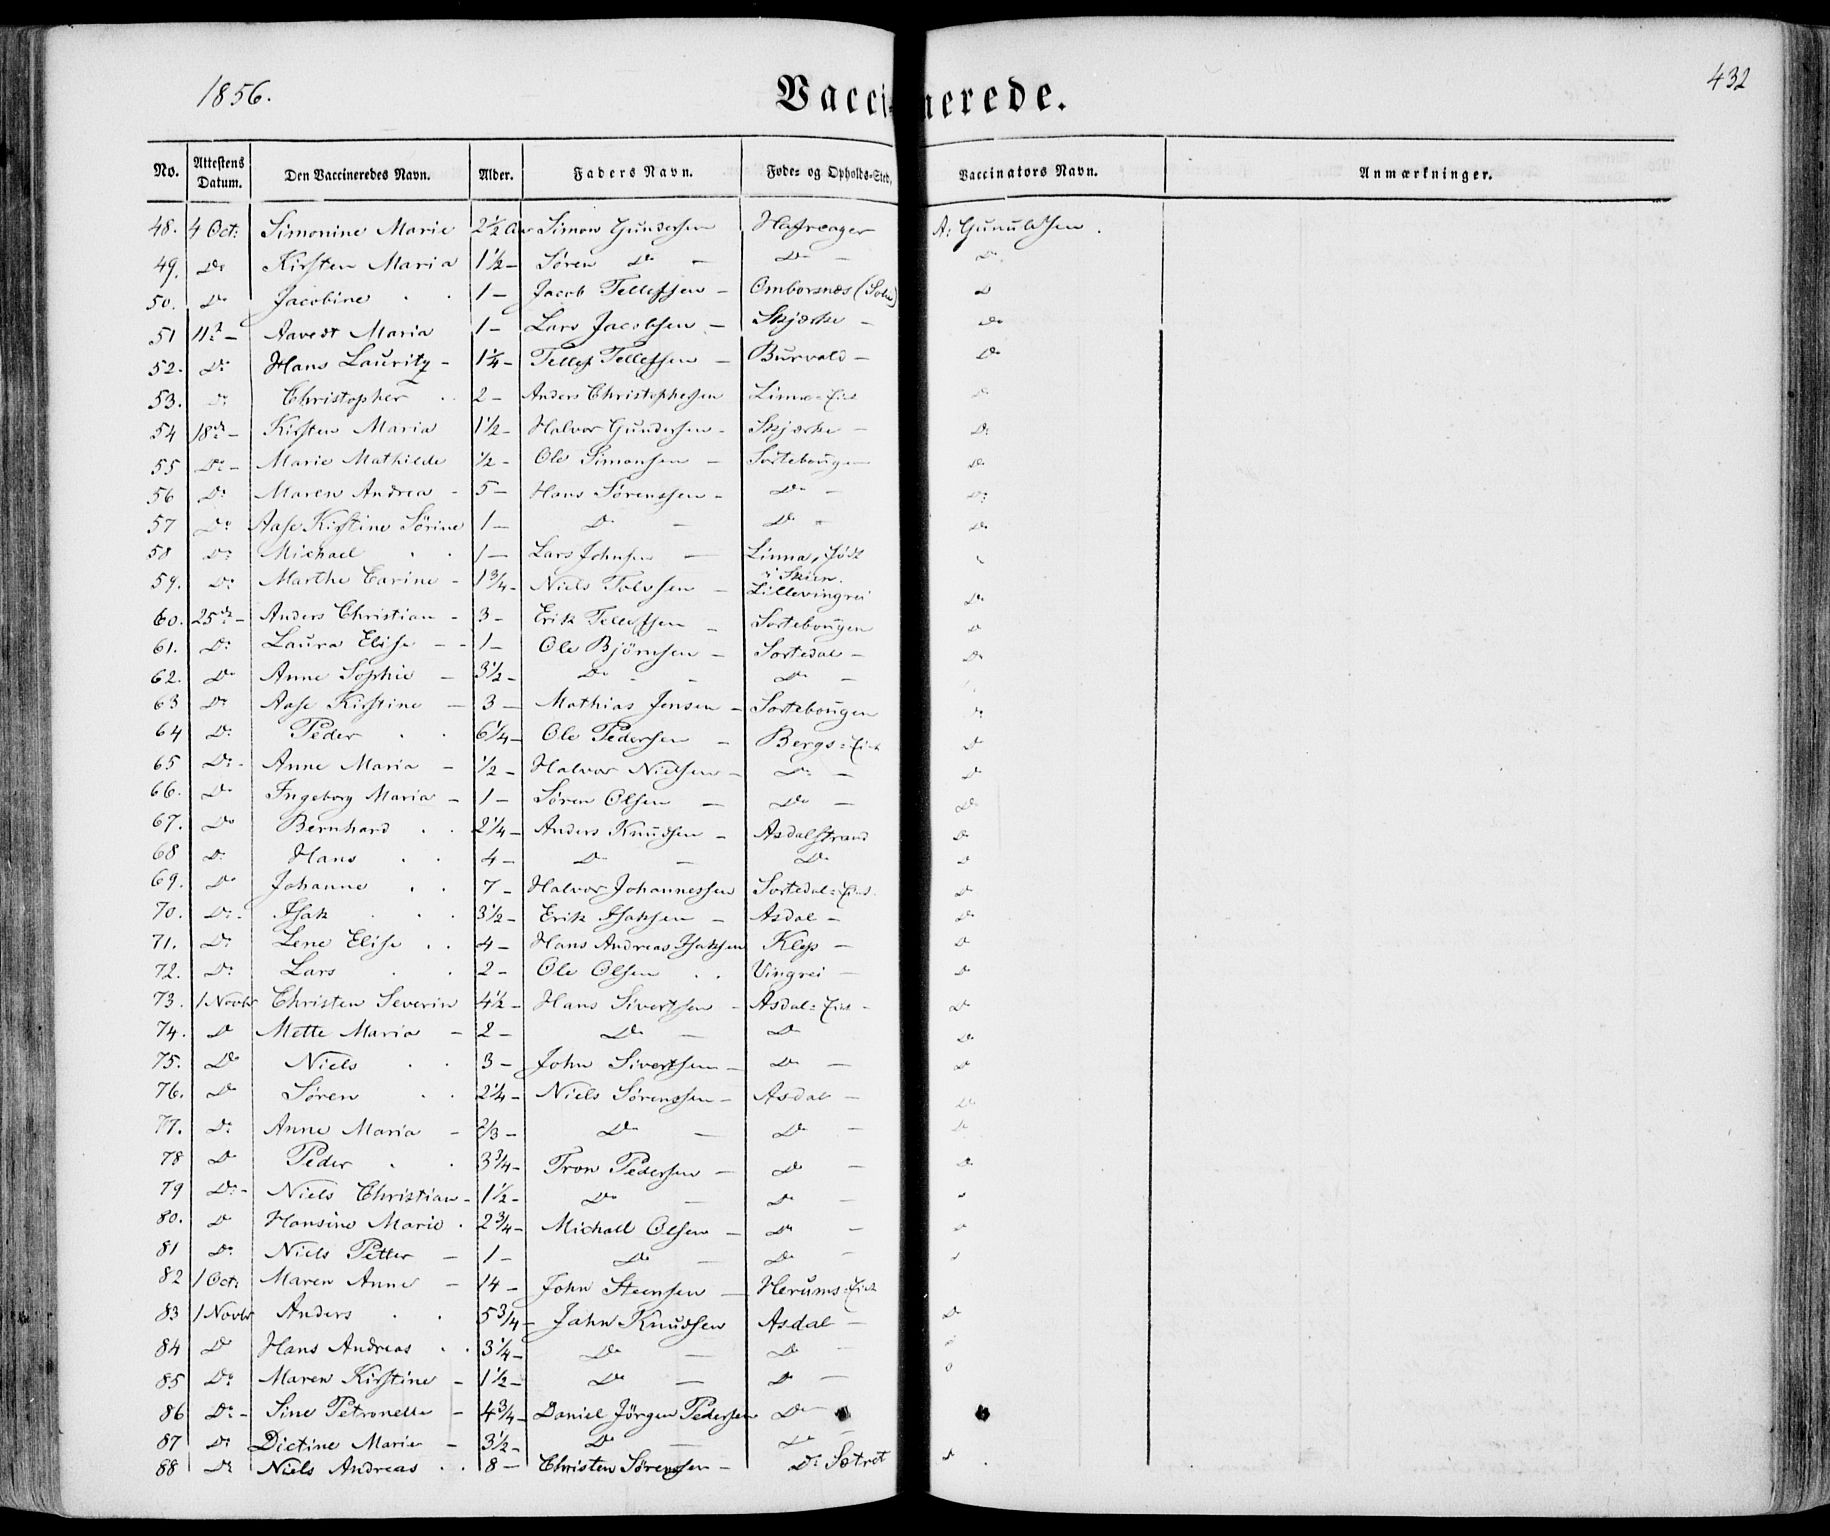 1856.
Vaccinerede.
432
No. Attestens Datum. Den Vaccineredes Navn. Alder. Faders Navn. Føde- og Opholds-Sted. Vaccinators Navn. Anmærkninger.
48. 4 Oct: Simonine Marie 2½ Simon Gundersen Hafreager A: Gunuldsen.
49. Do Kirsten Maria 1½ - Søren Do - Do - Do
50. Do Jacobine 1 - Jacob Tellefsen - Omborsnæs D
51 11te - Aavedt Maria 1 - Lars Jacobsen - Skjærke - Do
52. Do Hans Lauritz - 1¼ - Tellef Tellefsen - Burvald - Do
53. Do Christopher 2 - Anders Christophersen Linna = Do
54 18de - Kirsten Maria 1½ - Halvor Gundersen - Skjærke - Do
55 Do - Marie Mathilde ½ - Ole Simonsen - Sortebougen Do
56 Do Maren Andrea - 5 - Hans Sørenssen - Do - Do
57 Do Aase Kirstine Sørine 1 - Do - Do - Do
58 Do Michael 1 - Lars Johnsen - Linna, født
i Skien.
59. Do Marthe Carine - 1¾ - Niels Tolvsen - Lillevingrei Do
60. 25de - Anders Christian - 3 - Erik Tellefsen - Sortebougen D
61. Do Laura Elise - - 1 - Ole Bjørnsen - Sortedal - Do
62. Do Anne Sophie - 3½ - Do - - Do -
63 Do Aase Kirstine - 3 - Mathias Jensen - Sortebougen Do
64 Do Peder 6¼ - Ole Pedersen - Bergs = D
65 Do - Anne Maria - ½ - Halvor Nielsen - Do - D
66. Do Ingeborg Maria - 1 - Søren Olsen - Do - Do
67. Do Bernhard 2¼ - Anders Knudsen - Asdalstrand D
68 D Hans 4 - Do - Do D
69. Do Johanne 7 - Halvor Johannessen Sortedal = D
70. Do - Isak 3½ - Erik Isaksen - Asdal - Do
71. Do Lene Elise 4 - Hans Andreas Isaksen Klep - D
72. Do Lars 2 - Ole Olsen Vingrei - D
73. 1 Novbr Christen Severin 4½ - Hans Sivertsen - Asdal = Do
74. D Mette Maria - 2 - Do - Do Do
75. Do Niels 3 - John Sivertsen - Do - D
76. D Søren 2¼ - Niels Sørenssen - Asdal - Do
77. Do Anne Maria - ⅔ - Do - Do - Do
78 D Peder 3¾ - Tron Pedersen - Do - Do
79 Do - Niels Christian - 1½ - Do - Do -
80. D Hansine Marie 2¾ - Michall Olsen - Do -
81 Do Niels Petter - 1 - Do - Do -
82 1 Oct: Maren Anne - 14 - John Steensen - Herums =
83 1 Novbr Anders 5¾ - Jahn Knudsen Asdal - D
84 D Hans Andreas 3¼ - Do - Do -
85 Do Maren Kirstine - 1½ - Do - D -
86 Do - Sine Petronelle - 4¾ - Daniel Jörgen Pedersen Do -
87 Do Dictine Marie - 3½ - Do - Do -
88 Do Niels Andreas 8 - Christen Sørenssen - Do Sætret D